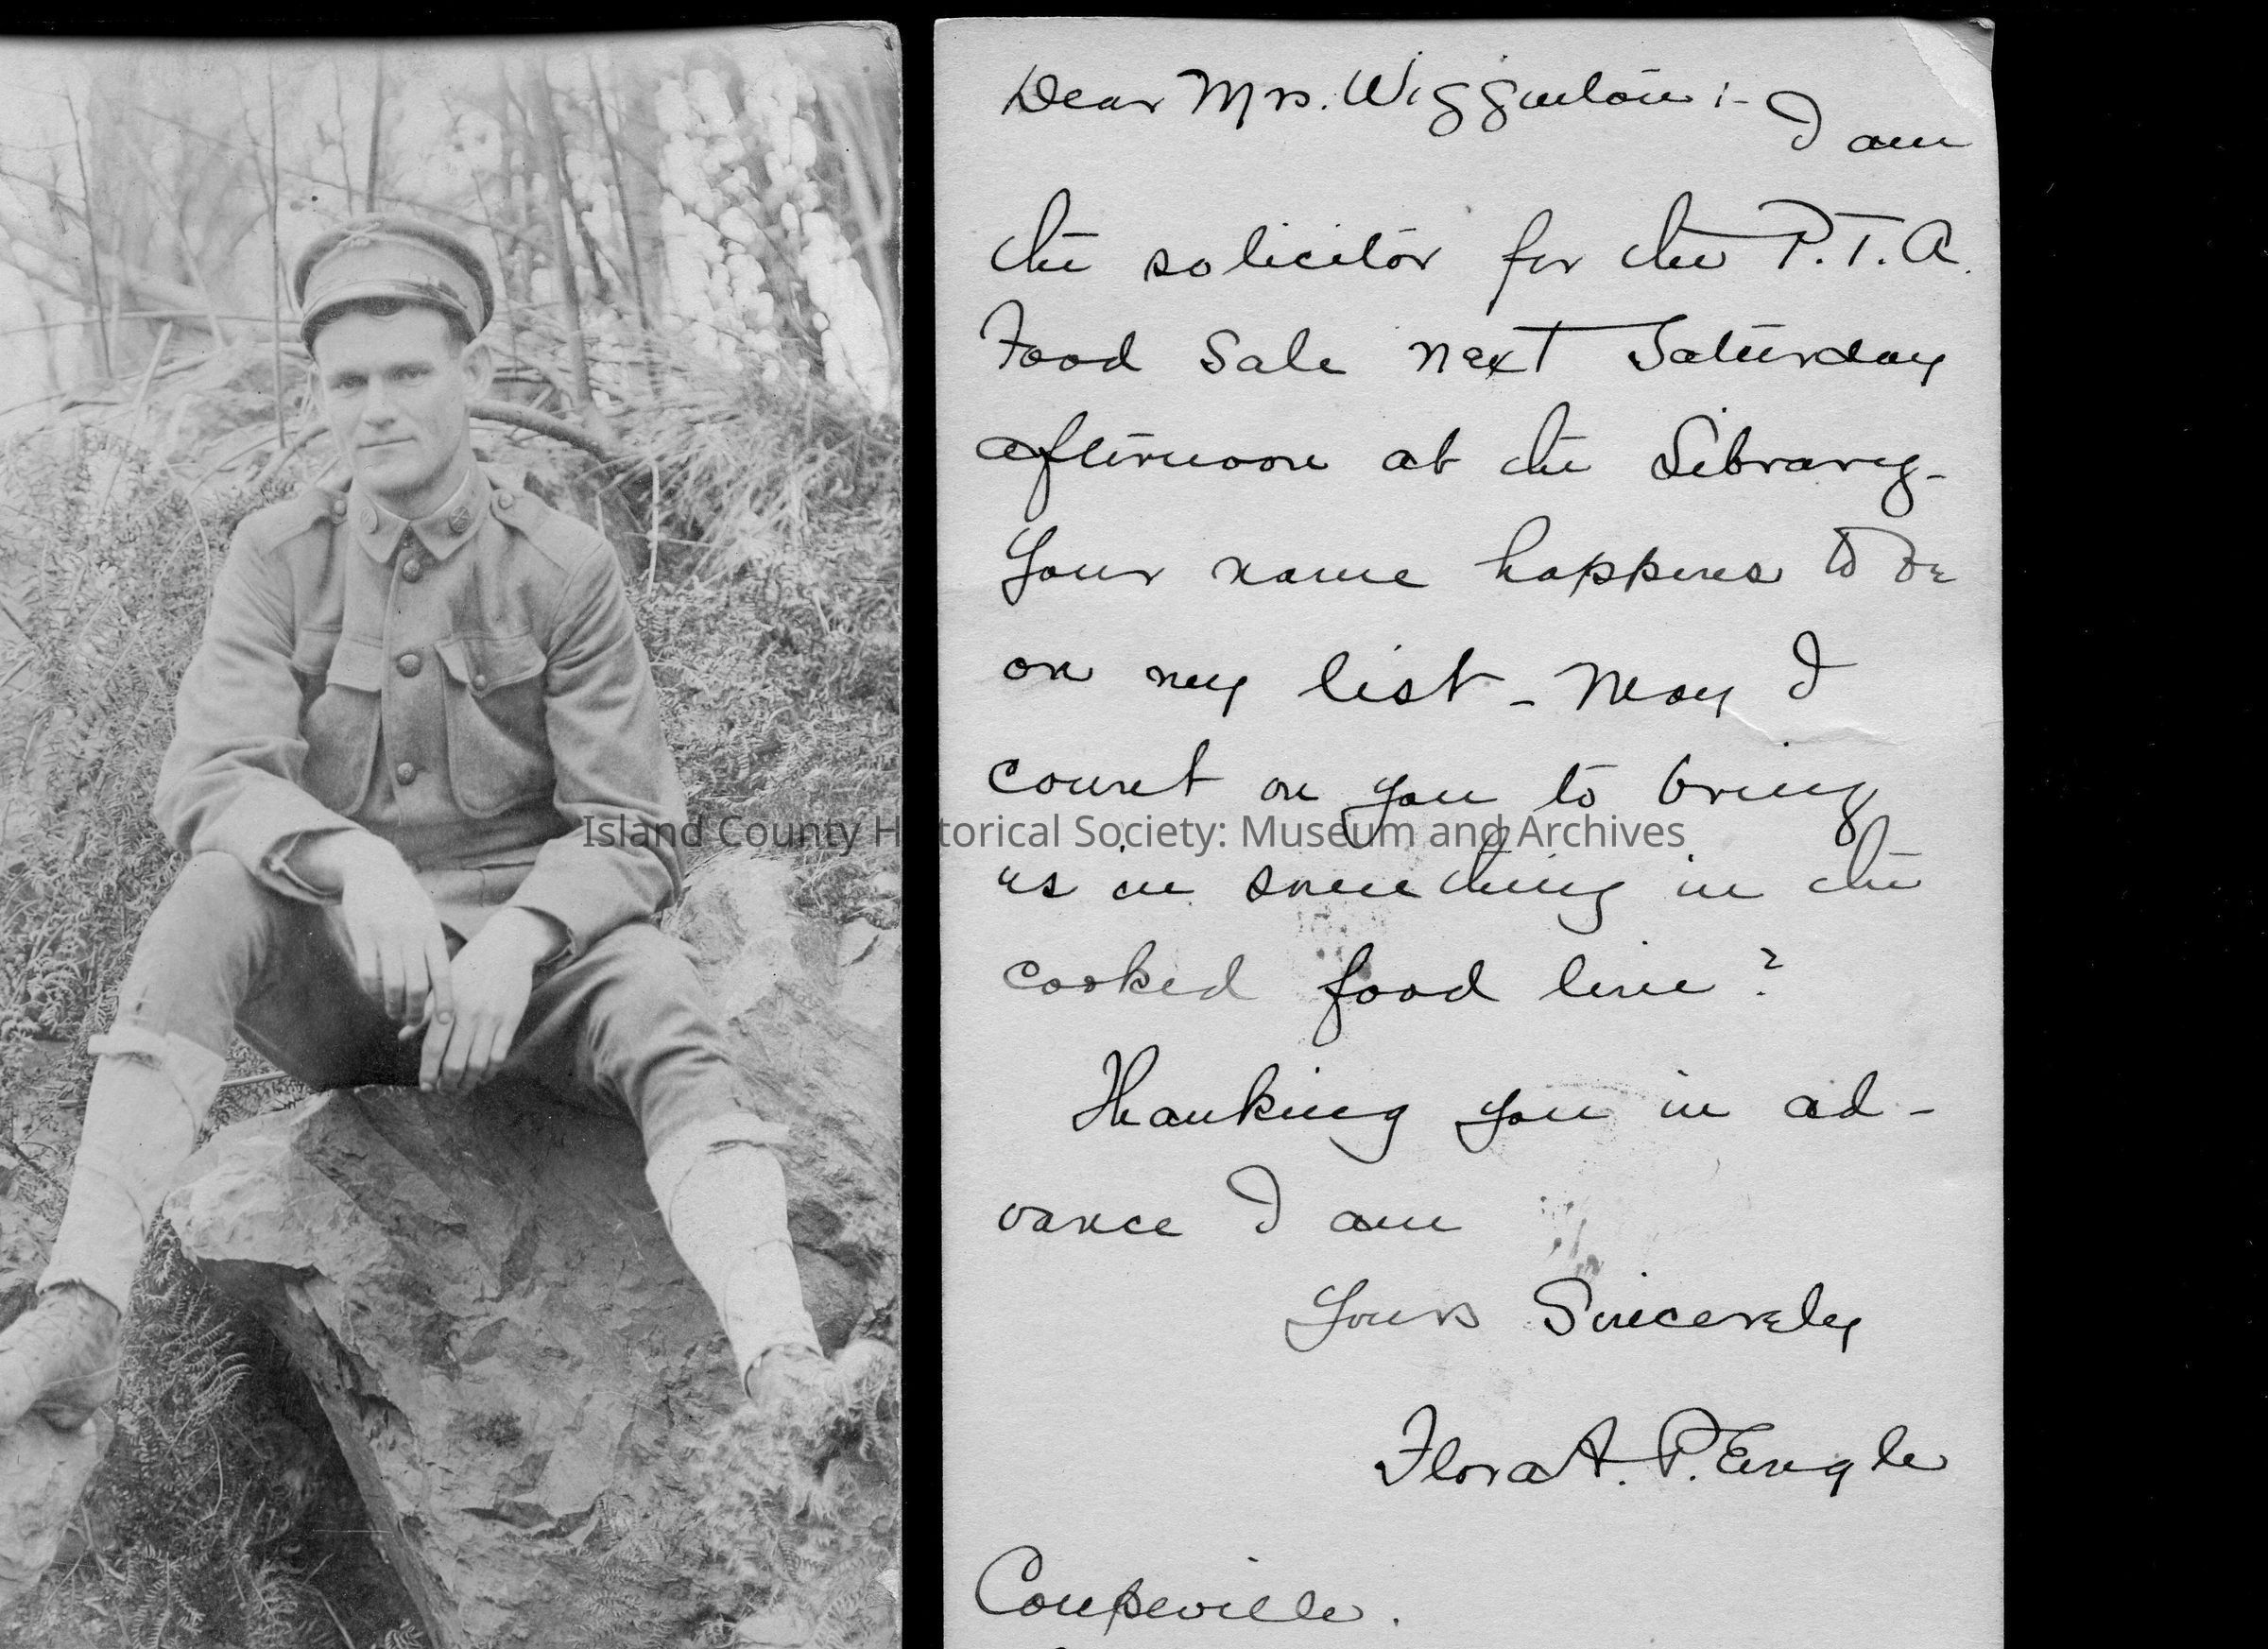 Dear Mrs. Wigginton :- I am
the solicitor for the P.T.A.
Food Sale next Saturday
afternoon at the Library -
Your name happens to be
on my list - May I
count on you to bring
Island County Historical Society: Museum and Archives
us in something in the
cooked food line?
Thanking you in ad-
vance I am
Yours Sincerely
Flora A. P. Engle
Coupeville.